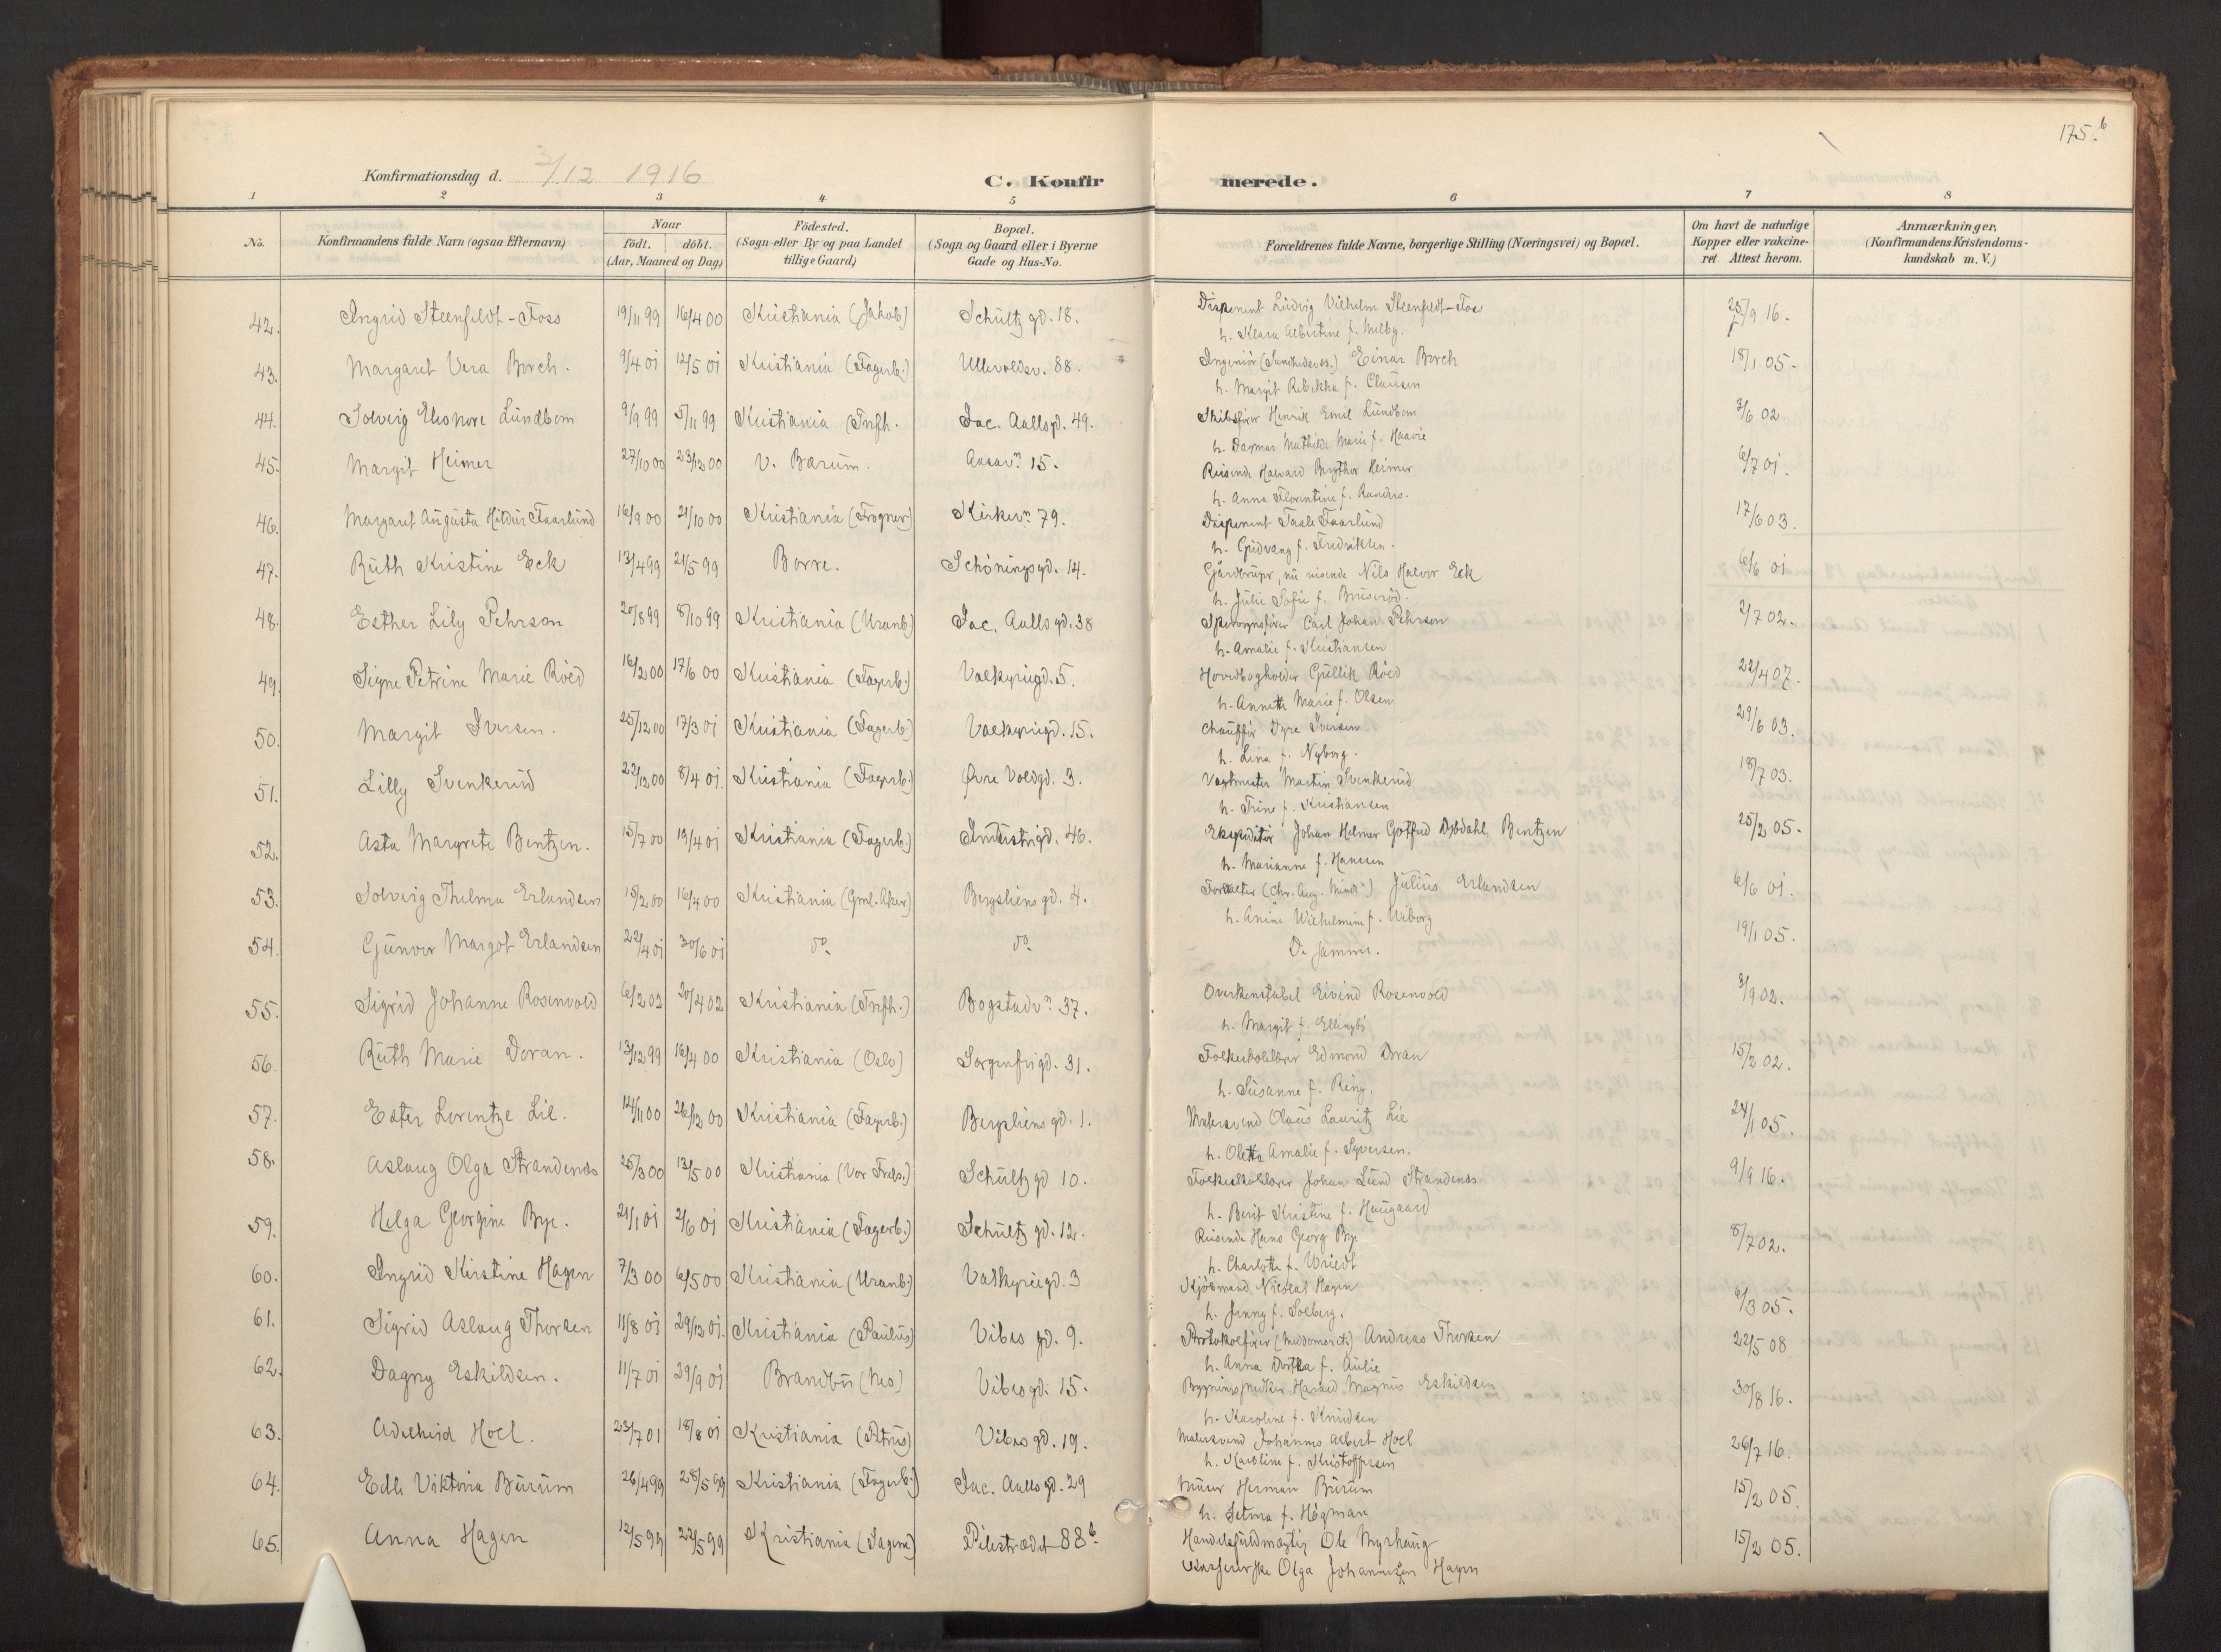 175.b
Konfirmationsdag d. 3/12 1916
C. Konfirmerede.
1 2 3 4 5 6 7 8
No. Konfirmandens fulde Navn (ogsaa Efternavn) Naar födt. döbt. (Aar, Maaned og Dag) Födested. (Sogn eller By og paa Landet tillige Gaard) Bopæl. (Sogn og Gaard eller i Byerne Gade og Hus-No. Forældrenes fulde Navne, borgerlige Stilling (Næringsvei) og Bopæl. Om havt de naturlige Kopper eller vakcineret. Attest herom. Anmærkninger. (Konfirmandens Kristendomskundskab m. V.)
42. Ingrid Steenfeldt-Foss 19/11 99 16/4 00 Kristiania (Jakob) Schültzgd. 18. Disponent Ludvig Vilhelm Steenfeldt-Foss 25/9 16.
h. Klara Albertine f. Melby.
43. Margaret Vera Borch. 9/4 01 12/5 01 Kristiania (Fagerb.) Ullevoldsv. 88. Ingeniör Einar Borch 18/1 05.
h. Margit Rebekka f. Clausen
44. Solveig Eleonore Lundbom 9/9 99 5/11 99 Kristiania (Trefh. Jac. Aallsgd. 49. Skibsförer Henrik Emil Lundbom 3/6 02
h. Dagmar Mathilde Marie f. Haavie
45. Margit Heimer 27/10 00 23/12 00 V. Bærum. Aasavn 15. Reisende Halvard Heimer 6/7 01.
h. Anna Florentine f. Randers.
46. Margaret Augusta Hildur Faarlund 16/9 00 21/10 00 Kristiania (Frogner) Kirkevn 79. Disponent Taale Faarlund 17/6 03.
h. Gudvang f. Fredriksen.
47. Ruth Kristine Eck 13/4 99 21/5 99 Borre. Schöningsgd. 14. Gårdbruger, nu reisende Nils Halvor Eck 6/6 01
h. Julie Sofie f. Bruseröd.
48. Esther Lily Pehrson 20/8 99 8/10 99 Kristiania (Uranb.) Jac. Aallsgd. 38 Sporvognsförer Carl Johan Pehrson 2/7 02.
h. Amalie f. Kristiansen
49. Signe Petrine Marie Röed 16/2 00 17/6 00 Kristiania (Fagerb.) Valkyriegd. 5. Hovedbogholder Gullik Röed 22/4 07.
h. Annette Marie f. Olsen
50. Margit Iversen. 25/12 00 17/3 01 Kristiania (Fagerb.) Valkyriegd. 15. Chaufför Dyre Iversen 29/6 03.
h. Lina f. Nyborg.
51. Lilly Svenkerud 22/12 00 8/4 01. Kristiania (Fagerb.) Övre Voldgd. 3. Vagtmester Martin Svenkerud 18/7 03.
h. Trine f. Kristiansen
52. Asta Margrete Bentzen. 15/7 00 19/4 01 Kristiania (Fagerb.) Industrigd. 46. Ekspeditör Johan Helmer Gotfred Dybdahl Bentzen 25/2 05.
h. Marianne f. Hanssen
53. Solveig Thelma Erlandsen 15/2 00 16/4 00 Kristiania (Gml. Aker) Bergsliensgd. 4. Forvalter (Chr. Aug. Minde) Julius Erlandsen 6/6 01.
h. Anine Wilhelmine f. Wiborg
54. Gunvor Margot Erlandsen 22/4 01 30/6 01 do do De samme. 19/1 05.
55. Sigrid Johanne Rosenvold 6/2 02 20/4 02 Kristiania (Trefh.) Bogstadvn 37. Overkonstabel Eivind Rosenvold 3/9 02.
h. Margit f. Ellingbö
56. Ruth Marie Doran. 13/12 99 16/4 00 Kristiania (Oslo) Sorgenfrigd. 31. Folkeskolelærer Edmond Doran 15/2 02.
h. Susanne f. Ring.
57. Ester Lorentze Lie. 14/11 00 26/12 00 Kristiania (Fagerb.) Bergsliensgd. 1. Malersvend Olaus Lauritz Lie 24/1 05.
h. Oletta Amalie f. Syversen.
58. Aslaug Olga Strandenæs 25/3 00 13/5 00 Kristiania (Vor Frels.) Schültzgd 10. Folkeskolelærer Johan Lund Strandenæs 9/9 16.
h. Berit Kristine f. Haugaard
59. Helga Georgine Bye. 21/1 01 2/6 01 Kristiania (Fagerb.) Schültzgd. 12. Reisende Hans Georg Bye 8/7 02.
h. Charlotte f. Wriedt
60. Ingrid Kirstine Hagen 7/3 00 6/5 00 Kristiania (Uranb.) Valkyriegd. 3 Kjöbmand Nicolai Hagen 6/3 05.
h. Jenny f. Solberg.
61. Sigrid Aslaug Thorsen 11/8 01 29/12 01. Kristiania (Paulus) Vibes gd. 9. Protokolförer Andreas Thorsen 22/5 08
h. Anna Dorthea f. Aulie
62. Dagny Eskildsen. 11/7 01 29/9 01 Brandbu (Nes) Vibesgd. 15. Harald Magnus Eskildsen 30/8 16.
h. Karoline f. Knudsen
63. Adelheid Hoel. 23/7 01 18/8 01 Kristiania (Petrus) Vibesgd. 19. Malersvend Johannes Albert Hoel 26/7 16.
h. Karoline f. Kristoffersen
64. Edle Viktoria Burum 26/4 99 28/5 99 Kristiania (Fagerb.) Jac. Aallsgd. 29 Murer Herman Burum 15/2 05.
h. Selma f. Högman
65. Anna Hagen 12/5 99 22/5 99 Kristiania (Sagene) Pilestrædet 88b Handelsfuldmægtig Ole Myrhaug 15/2 05.
Olga Johannessen Hagen